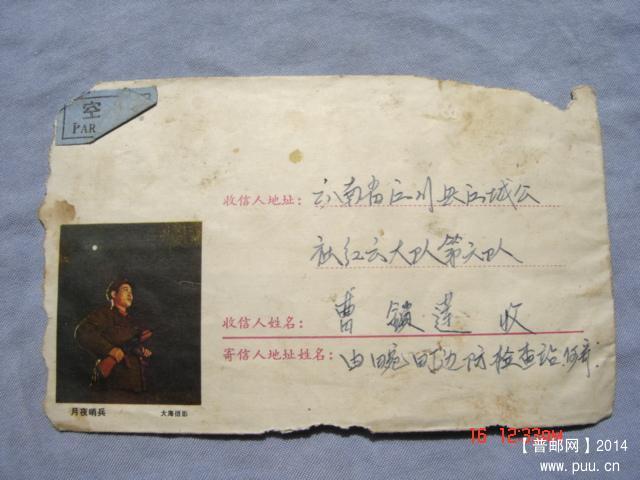 空
PAR
收信人地址：云南省江川县江城公
社红云大队第六队
收信人姓名：曹锁莲 收
寄信人地址姓名：由畹町边防检查站
月夜哨兵 大海摄影
16 12:33AM
【普邮网】2014
www.puu.cn